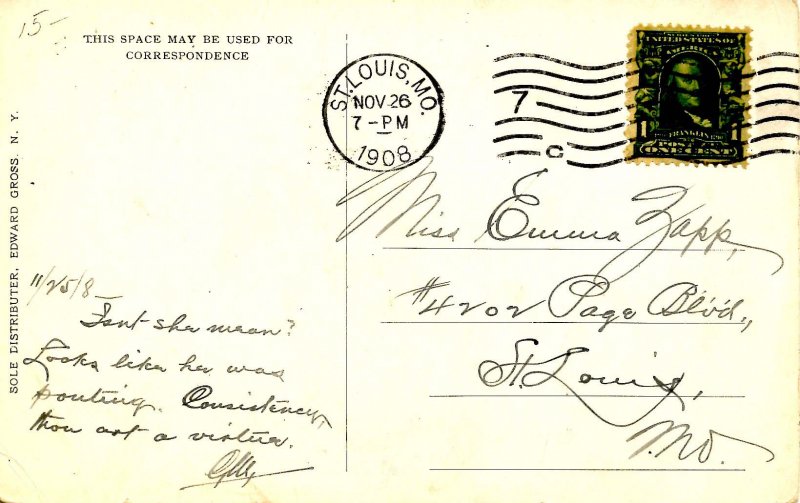 15-
THIS SPACE MAY BE USED FOR
CORRESPONDENCE
ST. LOUIS, MO.
NOV 26
7-PM
1908
7
C
UNITED STATES OF
AMERICA
1 FRANKLIN 1
ONE CENT
SOLE DISTRIBUTER, EDWARD GROSS. N. Y.
Miss Emma Zapp,
#4202 Page Blv'd.,
St. Louis,
Mo.
11/25/8
Isnt she mean?
Looks like he was
pouting. Consistency,
thou art a virtue.